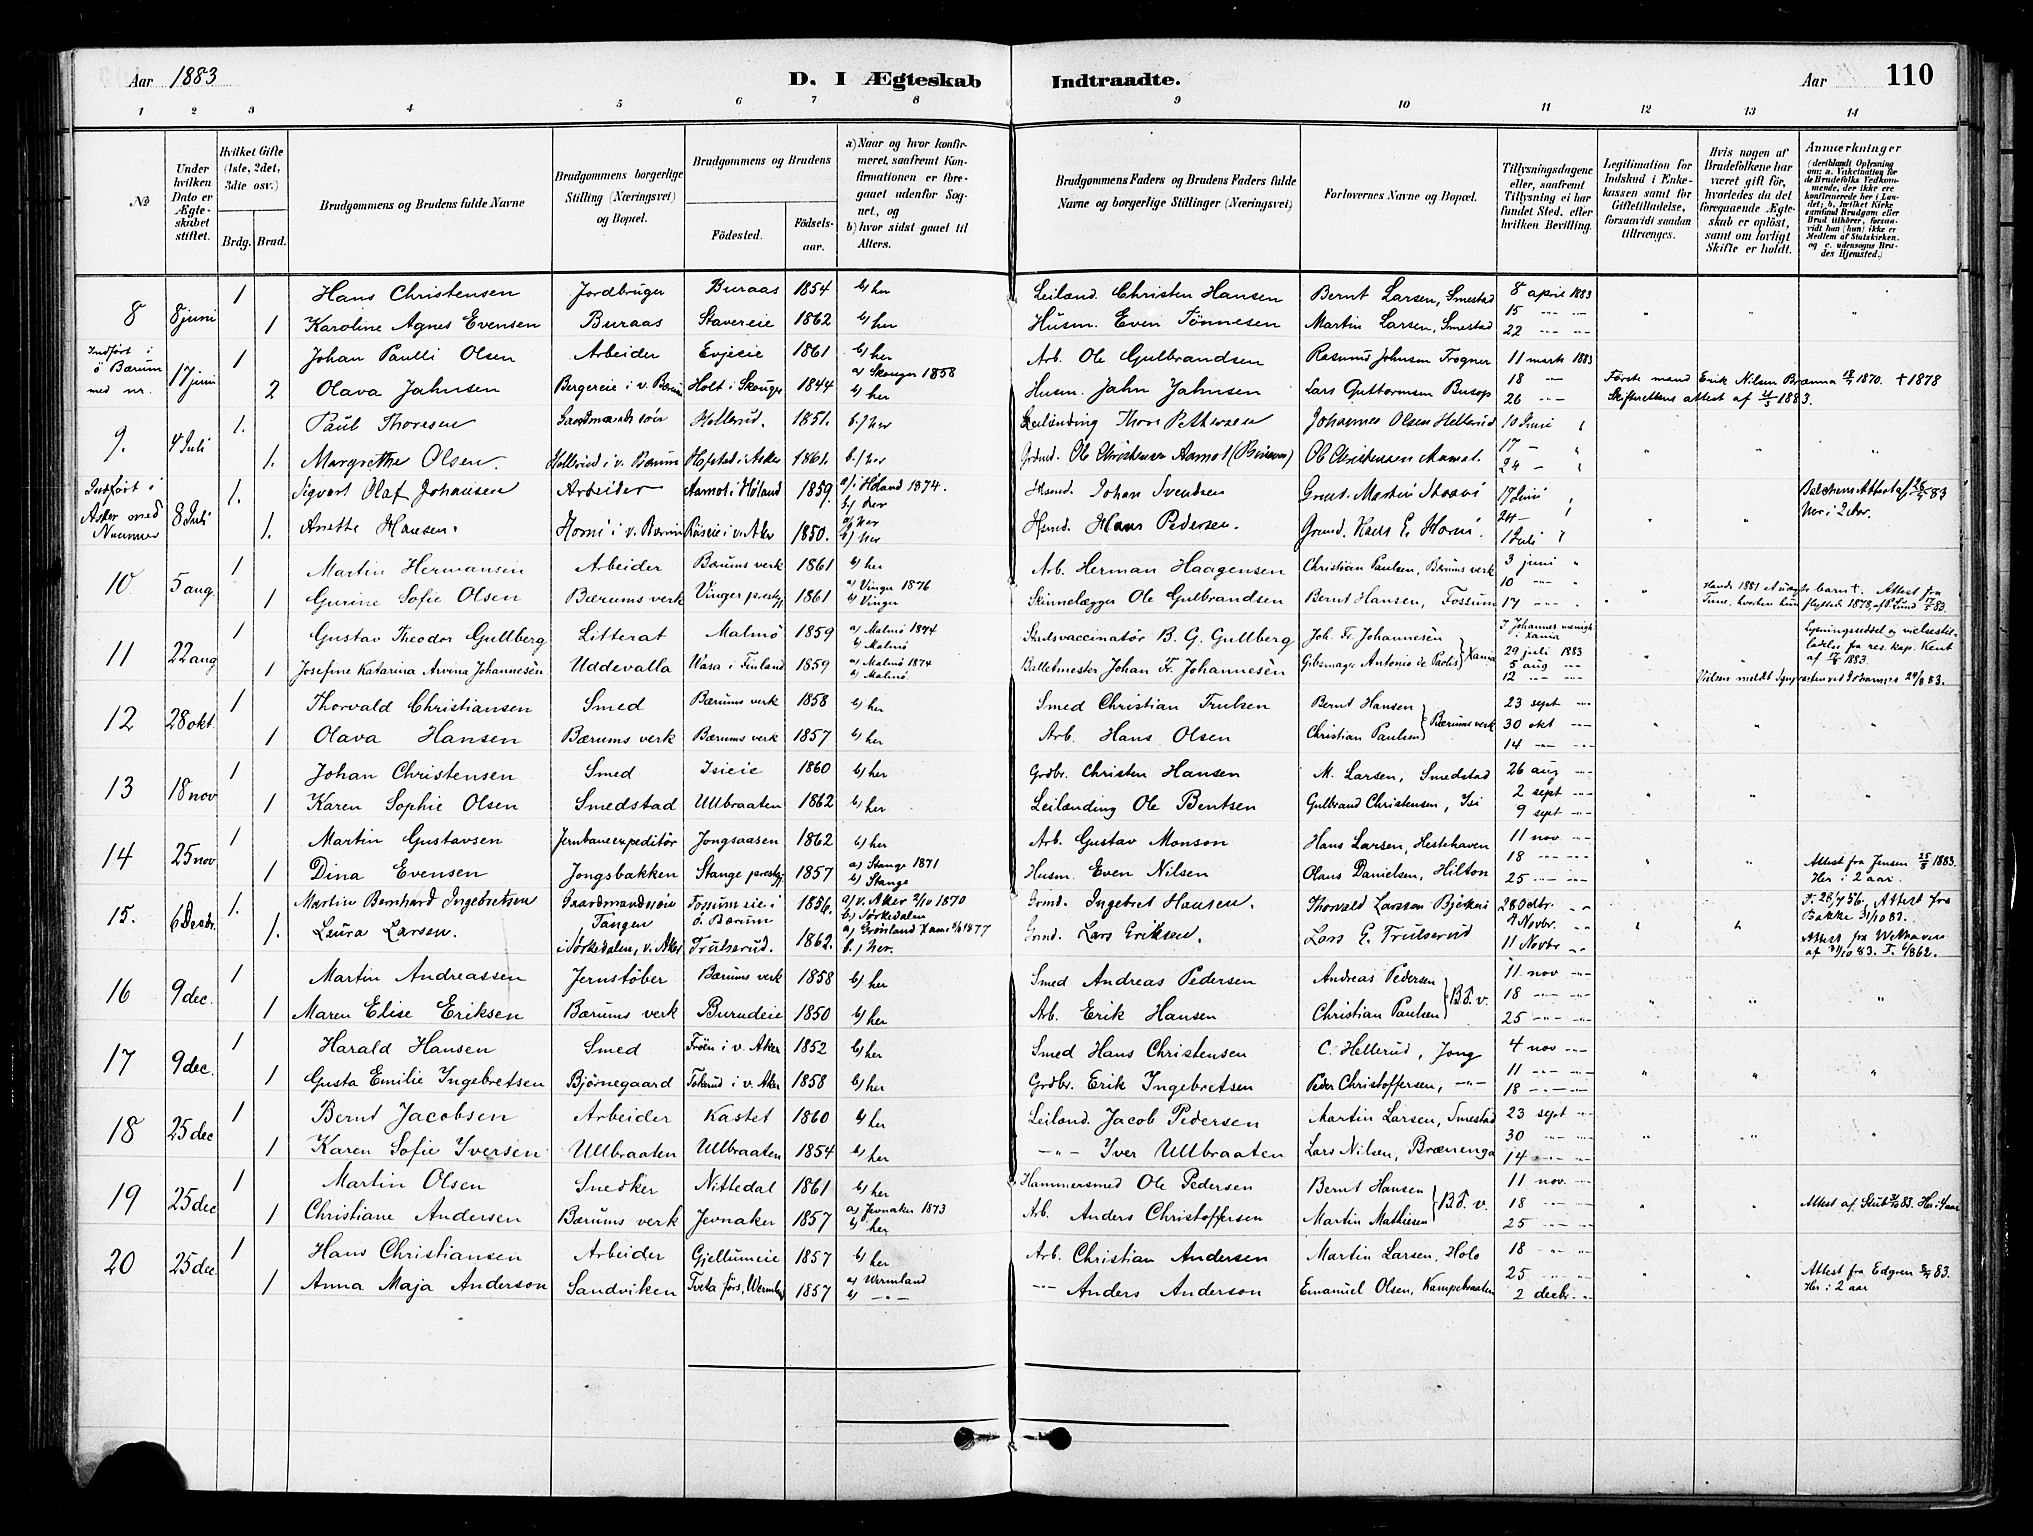 Aar 1883 D. I Ægteskab Indtraadte. Aar 110
1 2 3 4 5 6 7 8 9 10 11 12 13 14
No
Under hvilken Dato er Ægteskabet stiftet.
Hvilket Gifte (1ste, 2det, 3die osv.)
Brdg. Brud.
Brudgommens og Brudens fulde Navne
Brudgommens borgerlige Stilling (Næringsvei) og Bopæl.
Brudgommens og Brudens
Fødested.
Fødselsaar.
a) Naar og hvor konfirmeret, saafremt Konfirmationen er foregaaet udenfor Sognet, og
b) hvor sidst gaaet til Alters.
Brudgommens Faders og Brudens Faders fulde Navne og borgerlige Stillinger (Næringsvei)
Forlovernes Navne og Bopæl.
Tillysningsdagene eller, saafremt Tillysning ei har fundet Sted, efter hvilken Bevilling.
Legitimation for Indskud i Enkekassen samt for Giftetilladelse, forsaavidt saadan tiltrænges.
Hvis nogen af Brudefolkene har været gift før, hvorledes da det foregaaende Ægteskab er opløst, samt om lovligt Skifte er holdt.
Anmærkninger (deriblandt Oplysning om: a. Vakcination for de Brudefolks Vedkommende, der ikke ere konfirmerede her i Landet; b. hvilket Kirkesamfund Brudgom eller Brud tilhører, forsaavidt han (hun) ikke er Medlem af Statskirken. og c. udensogns Brudes Hjemsted.)
8 8 juni 1 Hans Christensen Jordbruger Buraas 1854 b) her Leilænd. Christen Hansen Bernt Larsen, Smestad 8 april 1883
1 Karoline Agnes Evensen Buraas Stavereie 1862 b) her Husm. Even Tønnesen Martin Larsen, Smestad 15 22
Indført i ö Bærum med nr. 17 juni 1 Johan Paulli Olsen Arbeider Evjeeie 1861 b) her Arb. Ole Gulbrandsen Rasmus Johnsen Trogner 11 marts 1883
2 Olava Jahnsen Bergereie i v. Bærum Holt i Skouger 1844 a) Skouger 1858 b) her Husm. Jahn Jahnsen Lars Guttormsen Busop 18 26 Første mand Erik Nilsen Brænna 1870. + 1878 Skifterettens attest af 21/3 1883.
9. 4 Juli 1. Paul Thoresen Gaardmandssøn Hellerud. 1851. b.) her Leilænding Thore Pettersen Johannes Olsen Hellerud 10 Juni
1. Margrethe Olsen. Hellerud i v. Bærum Hofstad i Asker 1861. b.) her Grdmd. Ole Christensen Aamot Ole Christensen Aamot. 17 24
Indført i Asker med Nummer 8 Juli 1. Sigvart Olaf Johansen Arbeider Aamot i Høland 1859. a) i Høland 1874. b) her Husmd. Johan Svendsen Grmd. Martin 17 Juni
1. Anette Hansen. Horni i v. Bærum i v. Aker 1850. a) her b) her Husmd. Hans Pedersen. Grmd. Hans E. Horni. 24 1 Juli
10 5 aug. 1 Martin Hermansen Arbeider Bærums verk 1861 b) her Arb. Herman Haagensen Christian Paulsen, Bærums verk 3 juni
1 Gurine Sofie Olsen Bærums verk Vinger prestgj 1861 a) Vinger 1876 b) Vinger Skinnelægger Ole Gulbrandsen Bernt Hansen, Fossum 10 17
11 22 aug 1 Gustav Theodor Gullberg Litterat Malmö 1859 a) Malmö 1874 b) Malmö Stadsvaccinatör B. G. Gullberg Joh. Fr. Johannesén I Johannes menigh i Xania 29 juli 1883
1 Josefine Katarina Arvina Johannesén Uddevalla Wasa i Finland 1859 a) Malmö 1874 b) Malmö Balletmester Johan Fr. Johannesén Gibsmager Antonio de Paolis Xania 5 aug 12
Lysningsseddel og vielsestilladelse fra res. kap. Kent af 17/8 1883.
12 28 okt. 1 Thorvald Christiansen Smed Bærums verk 1858 b) her Smed Christian Trulsen Bernt Hansen 23 sept
1 Olava Hansen Bærums verk Bærums verk 1857 b) her Arb. Hans Olsen Christian Paulsen Bærums verk 30 okt 14
13 18 nov 1 Johan Christensen Smed Isieie 1860 b) her Grdbr. Christen Hansen M. Larsen, Smedstad 26 aug
1 Karen Sophie Olsen Smedstad Ullbraaten 1862 b) her Leilænding Ole Bentsen Gulbrand Christensen, Isi 2 sept 9 sept
14 25 nov 1 Martin Gustavsen Jernbaneexpeditör Jongsaasen 1862 b) her Arb. Gustav Monson Hans Larsen, Hestehaven 11 nov
1 Dina Evensen Jongsbakken Stange prestgj 1857 a) Stange 1871 b) Stange Husm. Even Nilsen Olaus Danielsen, Hilton 18 25 Attest fra Jensen 25/5 1883. Her i 2 aar.
15. 6 Decbr. 1. Martin Bernhard Ingebretsen Gaardmandssøn Tangen i Sørkedalen, v. Aker Fossumeie i ö. Bærum 1856. a) v. Aker 2/10 1870 b) Sørkedalen Grmd. Ingebret Hansen. Thorvald Larsson 28 Octbr. F. 28/4 56. Attest fra Bakke 31/10 83.
1. Laura Larsen. Trulserud. 1862. a) Grønland Xania 1877 b.) her. Grmd. Lars Eriksen. Lars E. Trulserud 4 Novbr 11 Novbr Attest fra Welhaven af 31/10 83. F. 1862.
16 9 dec. 1 Martin Andreassen Jernstøber Bærums verk 1858 b) her Smed Andreas Pedersen Andreas Pedersen 11 nov
1 Maren Elise Eriksen Bærums verk Burudeie 1850 b) her Arb. Erik Hansen Christian Paulsen B. v. 18 25
17 9 dec. 1 Harald Hansen Smed Fröen i v. Aker 1852 b) her Smed Hans Christensen C. Hellerud, Jong 4 nov
1 Gusta Emilie Ingebretsen Björnegaard Tokerud i v. Aker 1858 b) her Grdbr. Erik Ingebretsen Peder Christoffersen, -"- 11 18
18 25 dec 1 Bernt Jacobsen Arbeider Kastet 1860 b) her Leilænd. Jacob Pedersen Martin Larsen, Smestad 23 sept
1 Karen Sofie Iversen Ullbraaten Ullbraaten 1854 b) her -"- Iver Ullbraaten Lars Nilsen, Brænenga 30 14
19 25 dec 1 Martin Olsen Snedker Nittedal 1861 b) her Hammersmed Ole Pedersen Bernt Hansen 11 nov
1 Christiane Andersen Bærums verk Jevnaker 1857 a) Jevnaker 1873 b) her Arb. Anders Christoffersen Martin Mathiesen B. v. 18 25 Attest af Stub 83. Her i 4 aar
20 25 dec 1 Hans Christiansen Arbeider Gjellumeie 1857 b) her Arb. Christian Andersen Martin Larsen, Holo 18
1 Anna Maja Anderson Sandviken Tveta förs, Wermland 1857 a) Wermland b) -"- -"- Anders Anderson Emanuel Olsen, Kampebraaten 25 2 decbr. Attest fra Edgren 83. Her i 2 aar